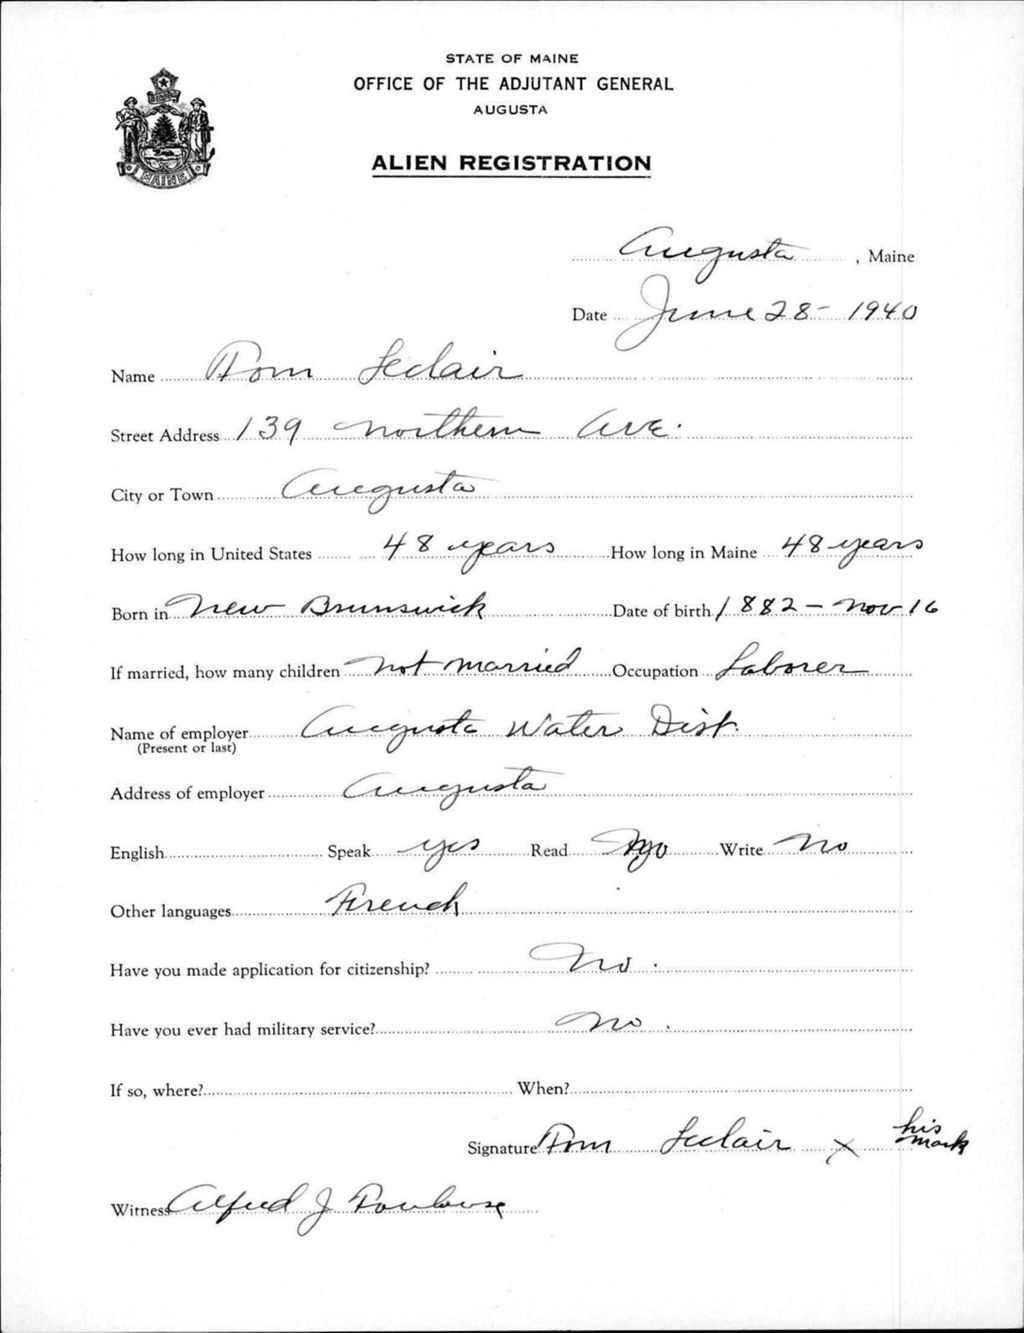 STATE OF MAINE
OFFICE OF THE ADJUTANT GENERAL
AUGUSTA
ALIEN REGISTRATION
MAINE
Augusta, Maine
Date June 28 - 1940
Name Tom Leclair
Street Address 139 Northern Ave.
City or Town Augusta
How long in United States 48 years How long in Maine 48 years
Born in New Brunswick Date of birth 1882 - Nov 16
If married, how many children Not married Occupation Laborer
Name of employer Augusta Water Dist.
(Present or last)
Address of employer Augusta
English Speak yes Read No Write No
Other languages French
Have you made application for citizenship? No.
Have you ever had military service? No.
If so, where? When?
Signature Tom Leclair X his mark
Witness Alfred J Toulouse